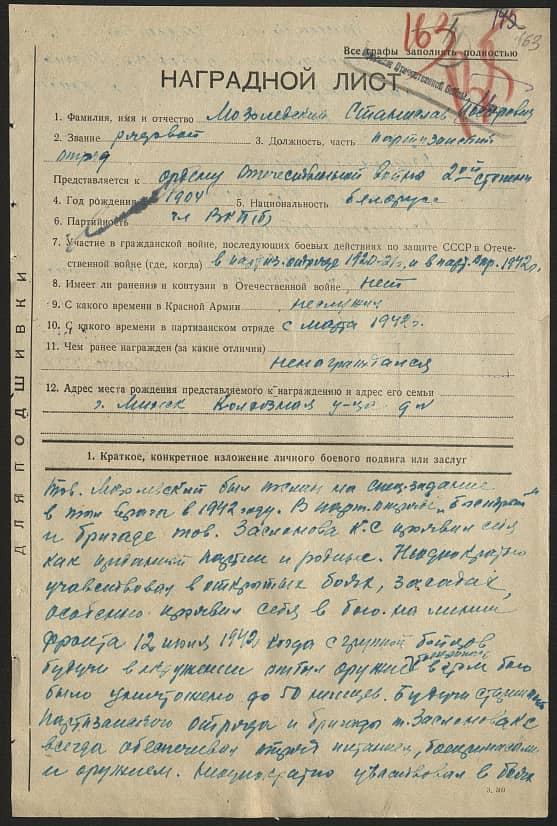 163
142
163
Все графы заполнять полностью
НАГРАДНОЙ ЛИСТ
1. Фамилия, имя и отчество Мохлевский Станислав Петрович
2. Звание рядовой 3. Должность, часть партизанский
отряд
Представляется к ордену Отечественной войны 2ой степени
4. Год рождения 1904 5. Национальность белорус
6. Партийность чл ВКП(б)
7. Участие в гражданской войне, последующих боевых действиях по защите СССР в Отече-
ственной войне (где, когда) в партиз. отряде 1920-21г. и в парт. отр. 1942г.
8. Имеет ли ранения и контузии в Отечественной войне нет
9. С какого времени в Красной Армии не служил
10. С какого времени в партизанском отряде с марта 1942г.
11. Чем ранее награжден (за какие отличия)
ненаграждался
12. Адрес места рождения представляемого к награждению и адрес его семьи
г. Минск Колхозная у-ца
ДЛЯ ПОДШИВКИ
1. Краткое, конкретное изложение личного боевого подвига или заслуг
Тов. Мохлевский был послан на спец. задание
в тыл врага в 1942 году. В парт. отряде
и бригаде тов. Заслонова К.С проявил себя
как преданный партии и родине. Неоднократно
учавствовал в открытых боях, засадах,
особенно проявил себя в бою на линии
фронта 12 июня 1942 когда с группой бойцов
будучи в окружении отбил оружие в этом бою
было уничтожено до 50 немцев. Будучи
партизанского отряда и бригады т. Заслонова К.С
всегда обеспечивал отряд питанием, боеприпасами
и оружием. Неоднократно учавствовал в боях
З. 30